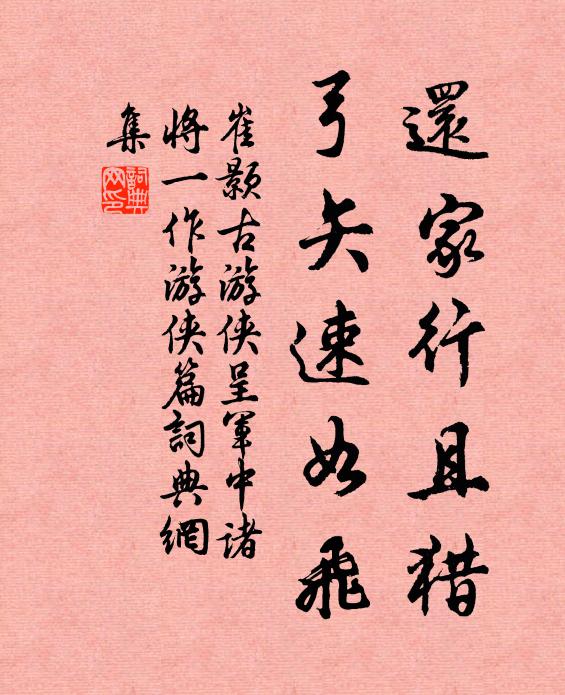 還家行且猎
弓矢速如飛
崔颢古游侠呈軍中諸
将一作游侠篇詞典網
集
詞典网印